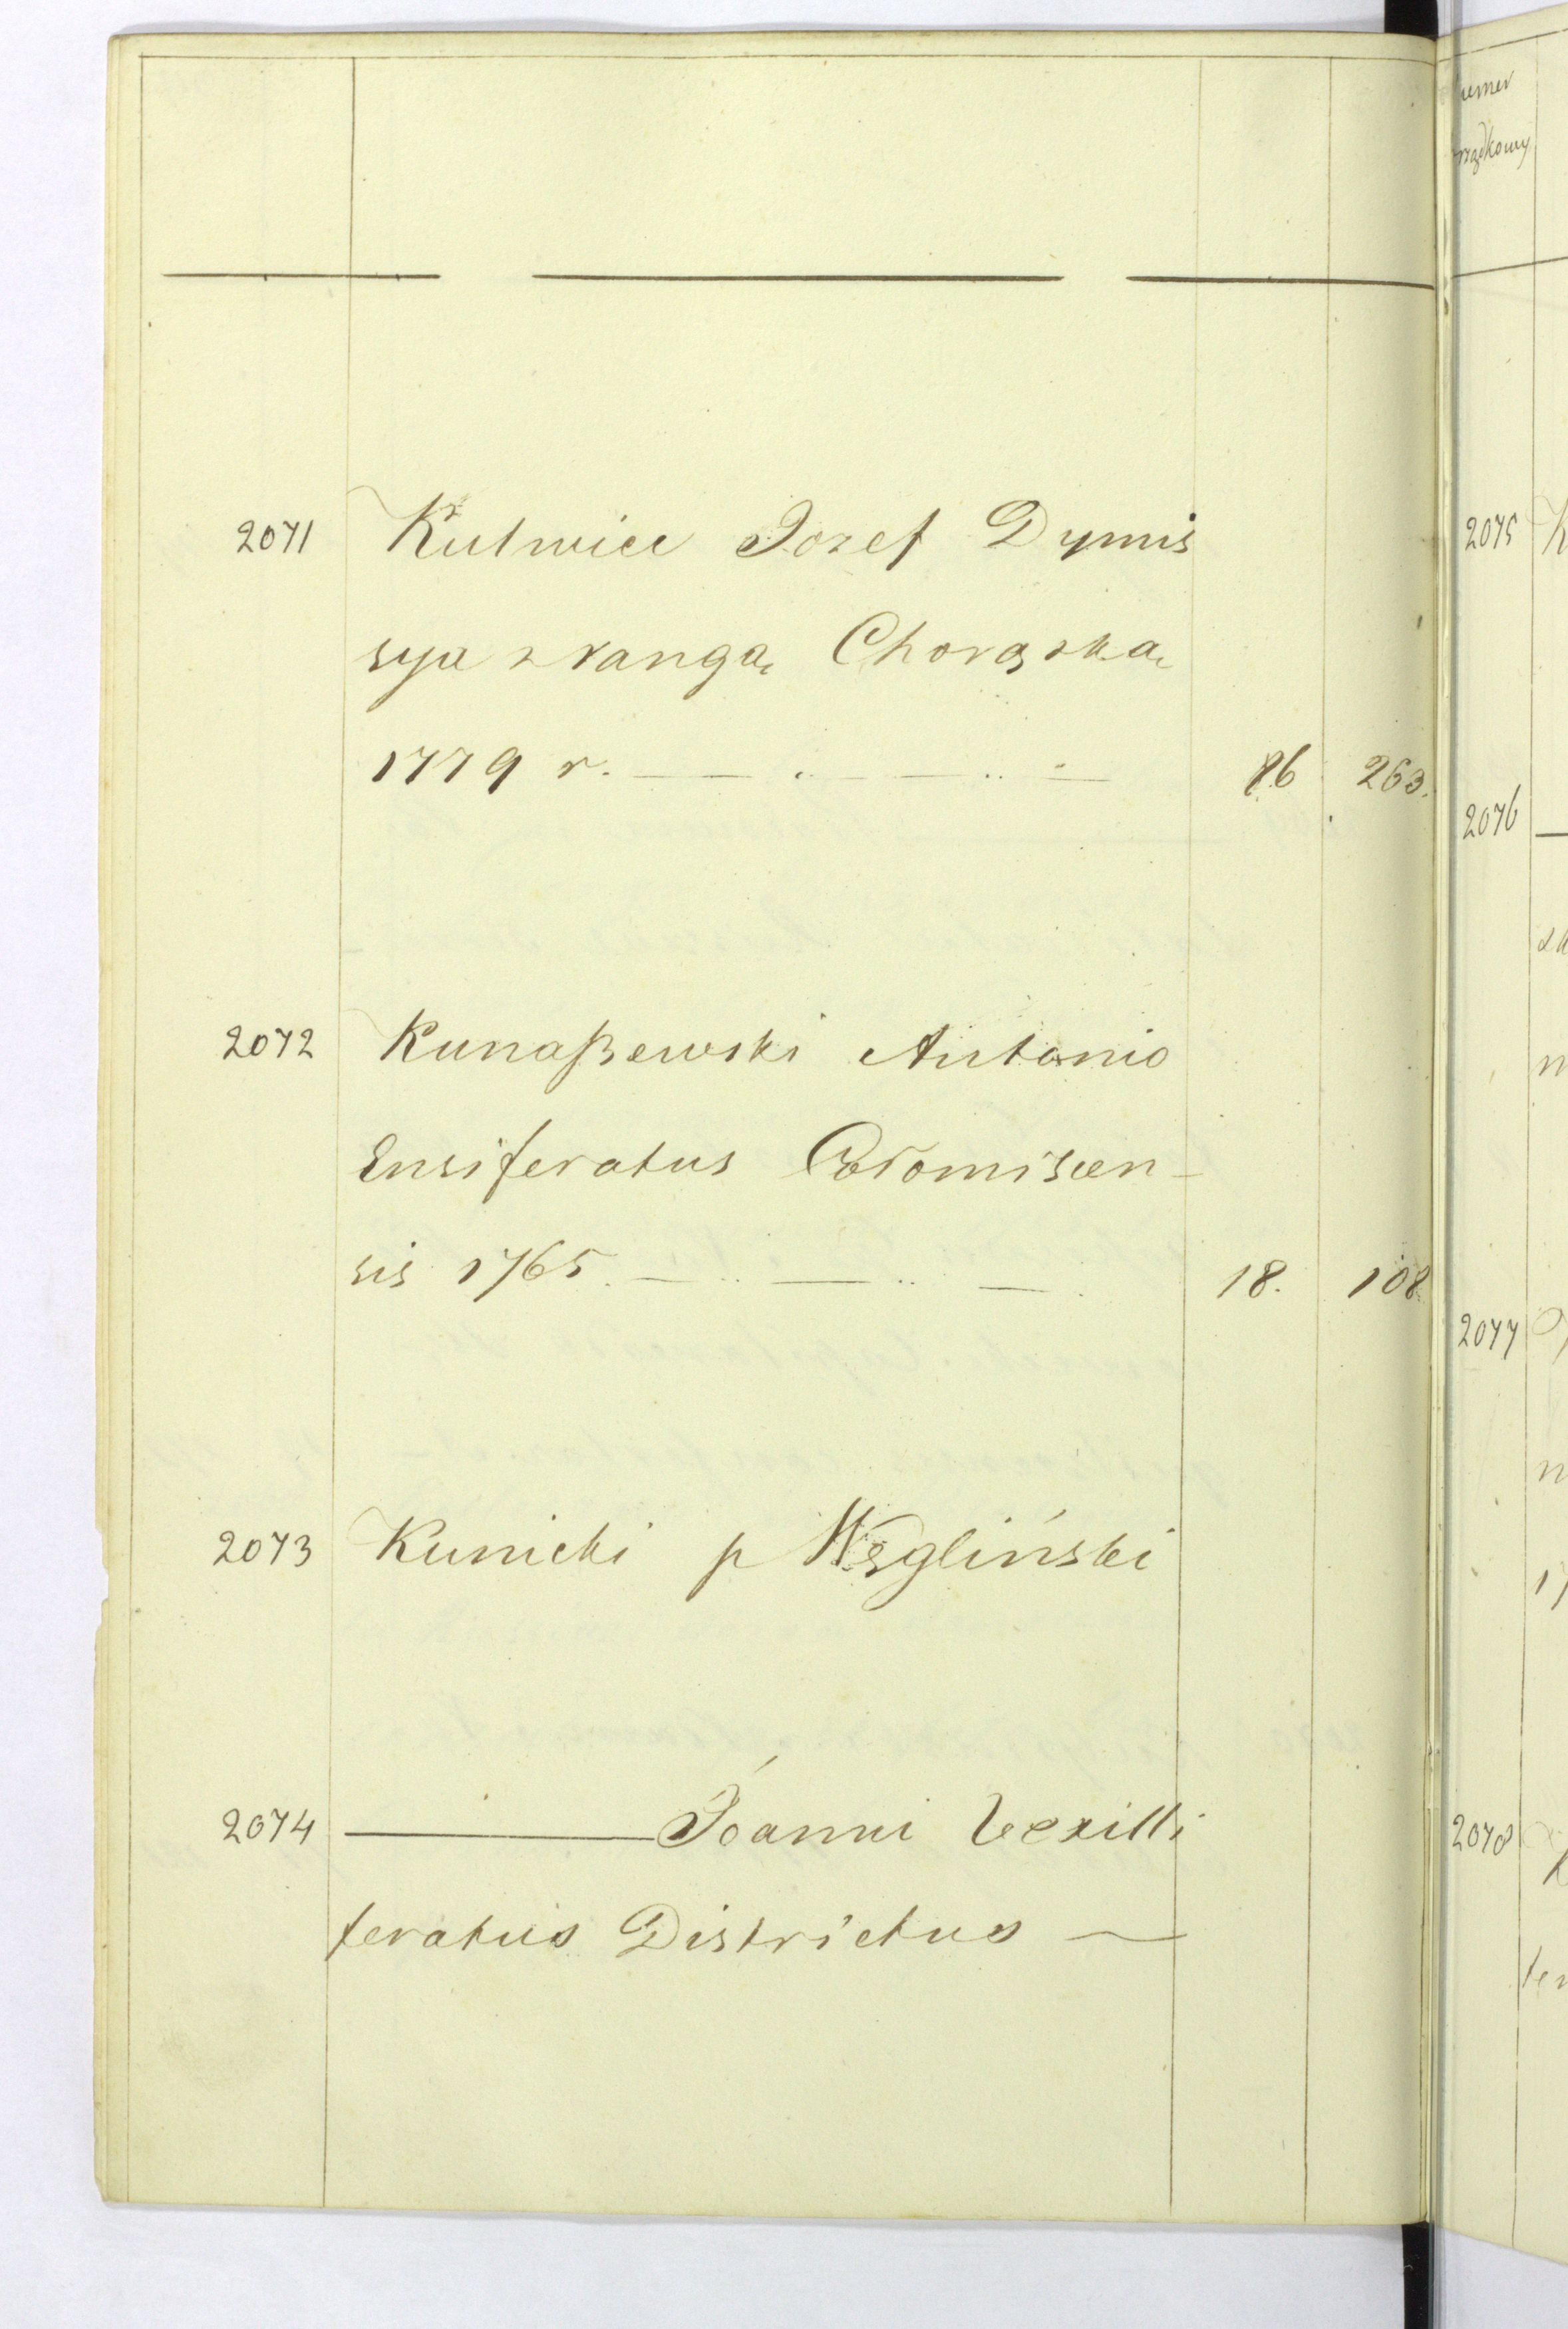 2071 Kulwiec Jozef Dymis
sya z rangą Chorązką
1779 r. 86 263.
2072 Kunaßewski Antonio
Ensiferatus
sis 1765. 18. 108
2073 Kunicki p Węgliński
2074 Joanni Vexilli
feratus Districtus
umer
rządkowy
2075 K
2076
2077
2078